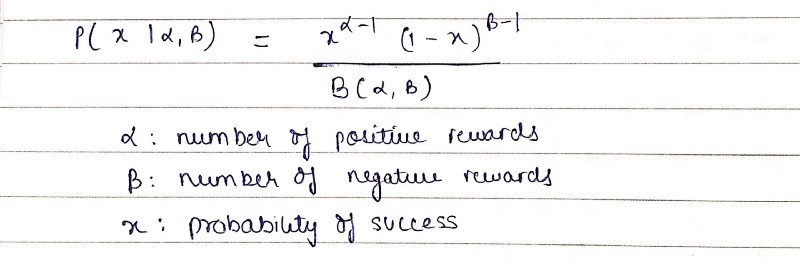 P( x | α, β) = x^{α-1} (1 - x)^{β-1}
B(α, β)
α : number of positive rewards
β : number of negative rewards
x : probability of success